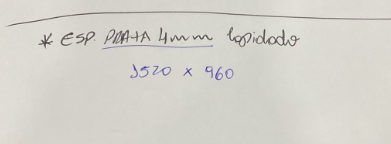 * ESP. PRATA 4mm lapidado
1520 x 960